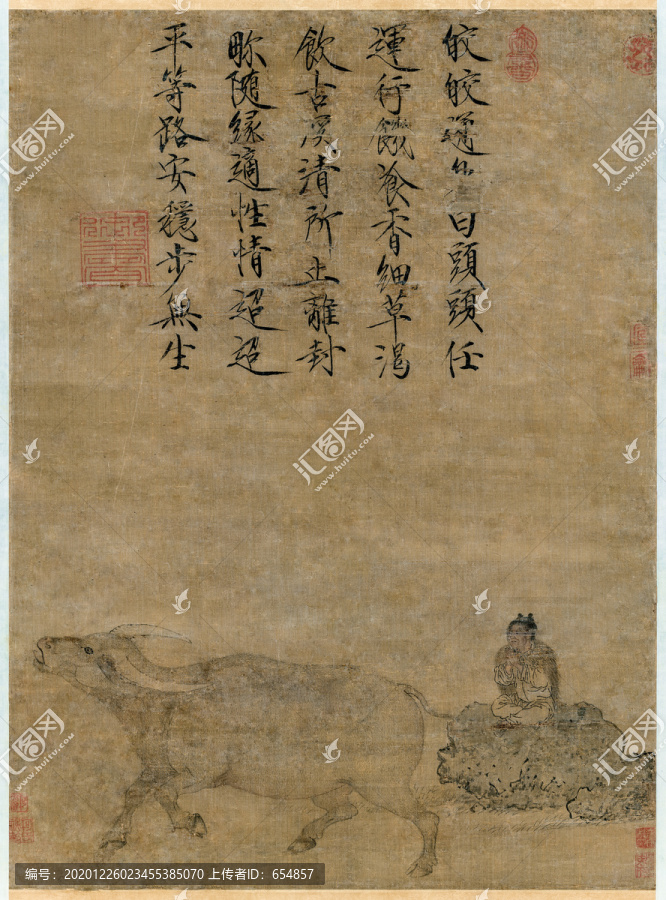 皎皎頭頭任
運行餓飡香細草渴
飲古溪清所止離封
畛隨緣適性情迢迢
平等路安穩步無生
汇图网
www.huitu.com
编号：20201226023455385070 上传者ID：654857